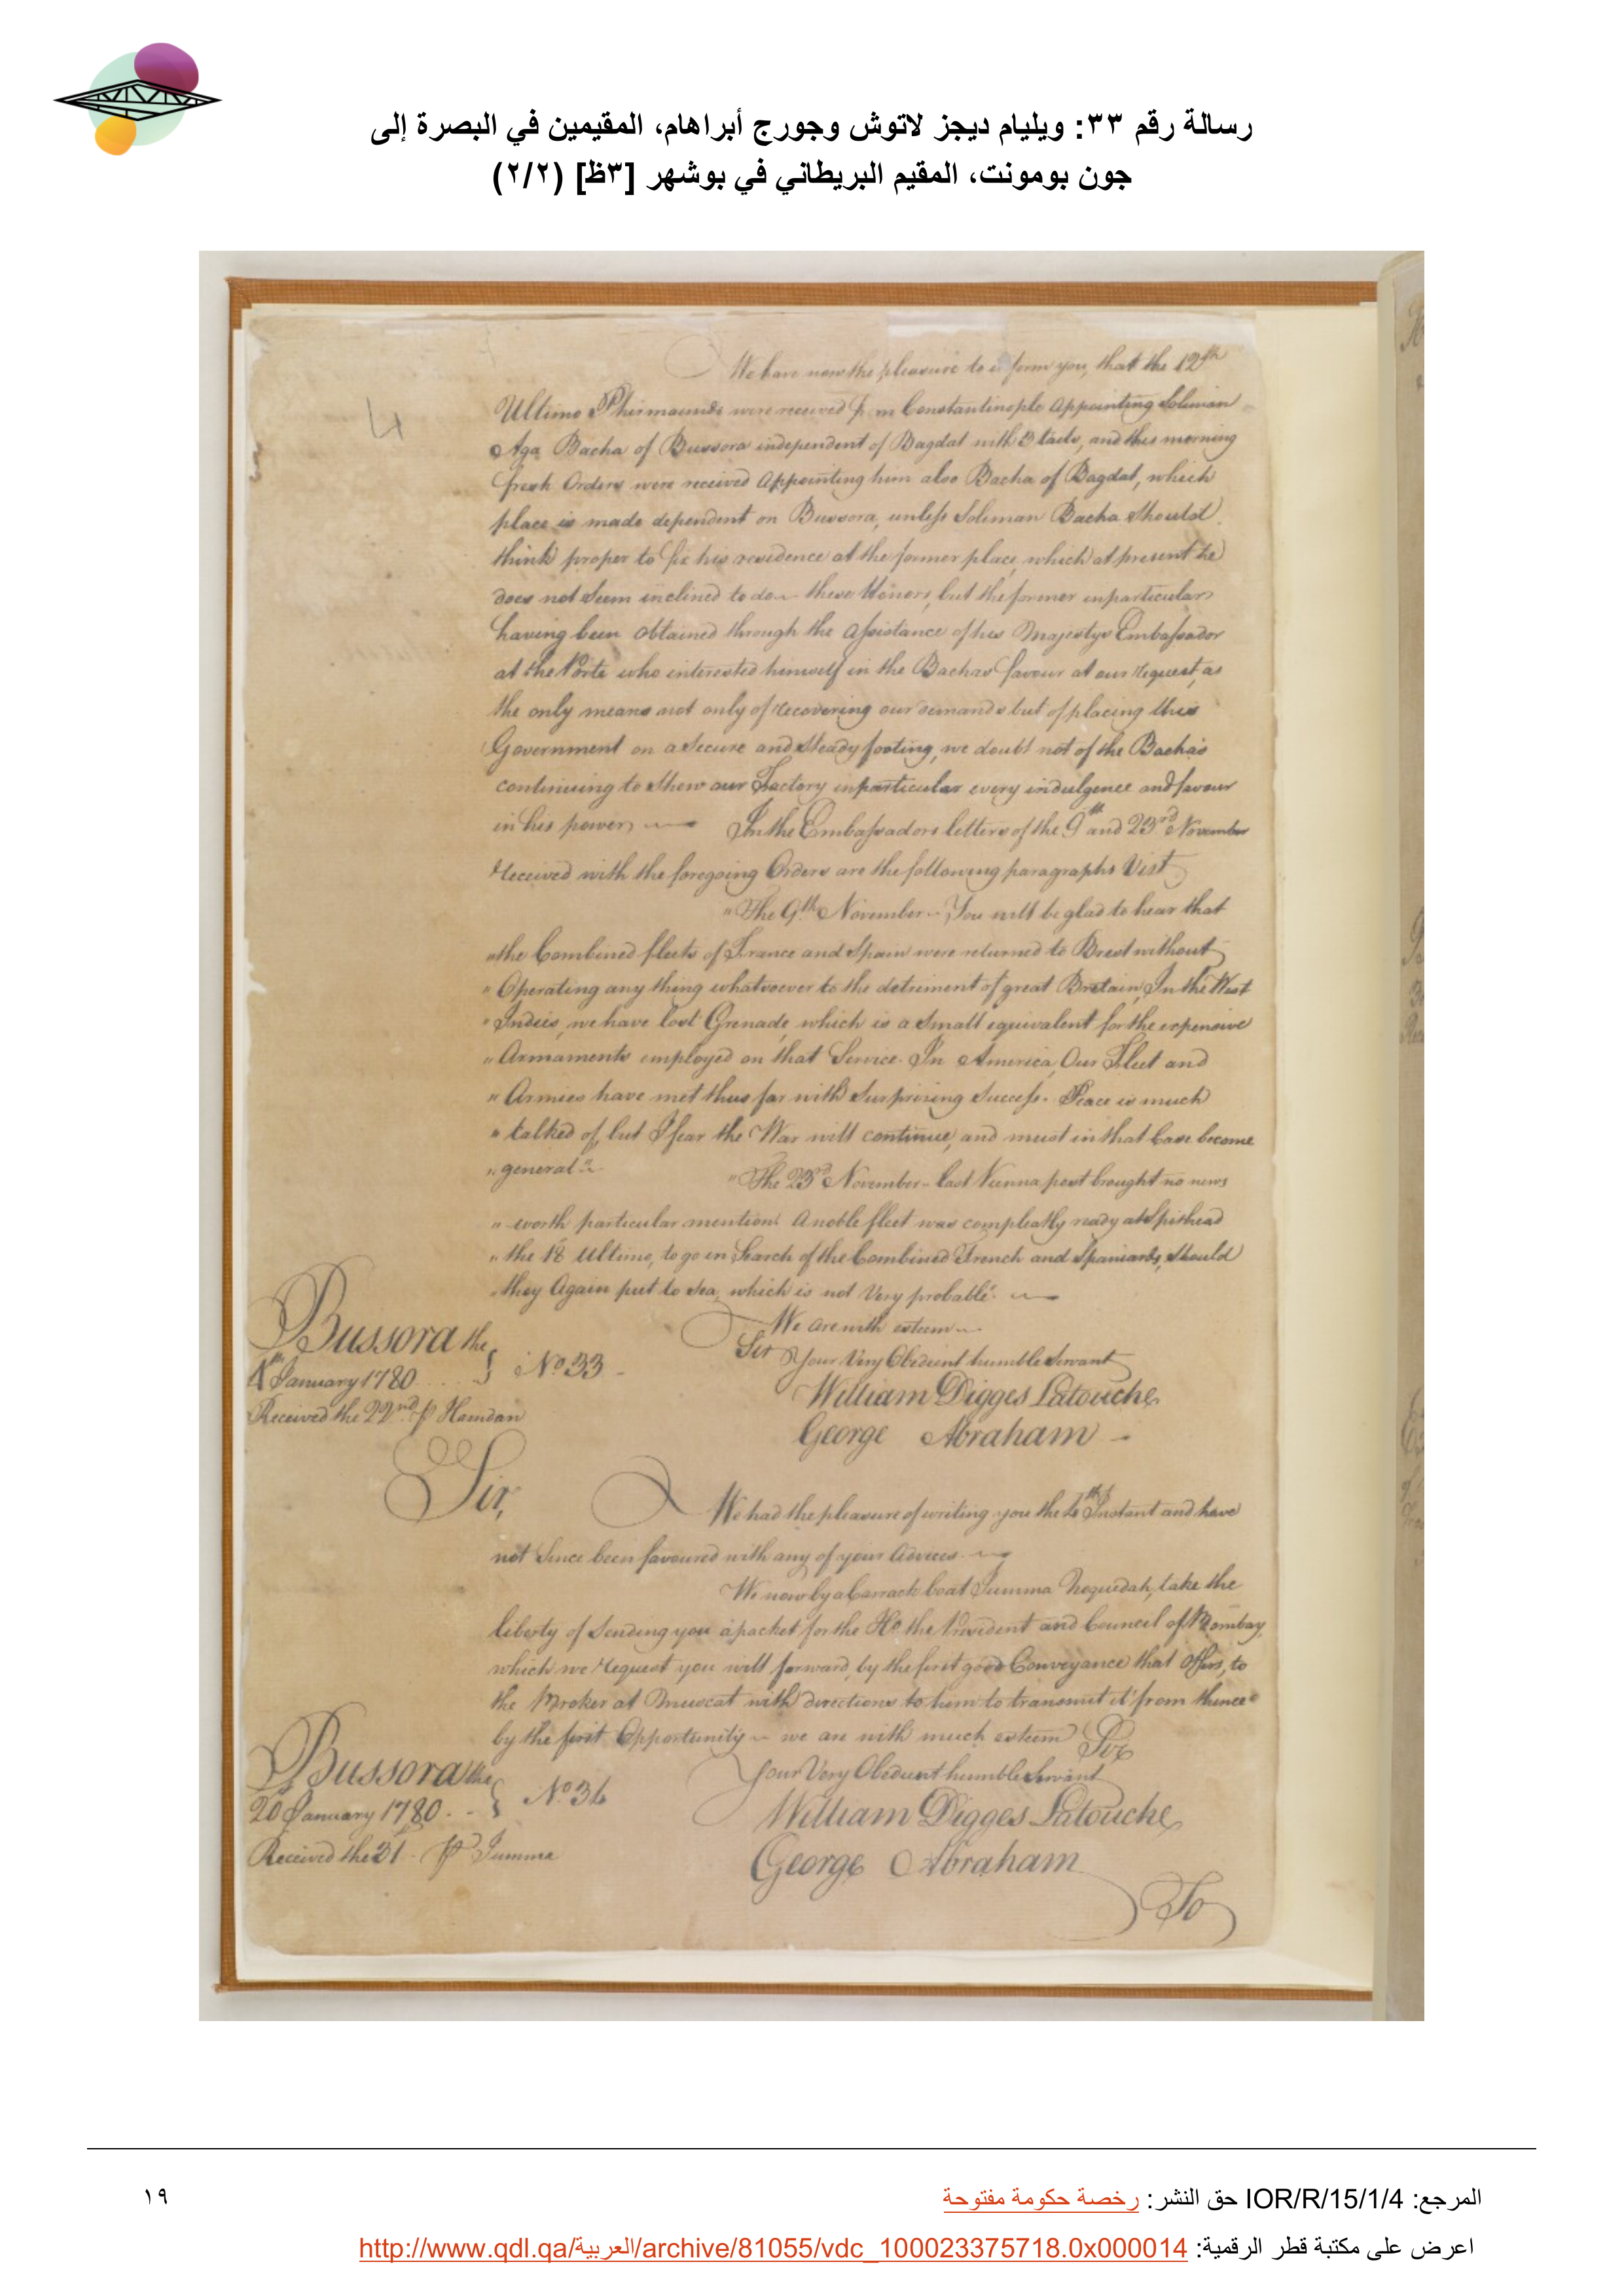 رسالة رقم ٣٣: ويليام ديجز لاتوش وجورج أبراهام، المقيمين في البصرة إلى
جون بومونت، المقيم البريطاني في بوشهر [٣ظ] (٢/٢)
4
We have now the pleasure to inform you, that the 12th
Ultimo Phirmaunds were received from Constantinople Appointing Soliman
Aga Bacha of Bussora independent of Bagdat with 3 tails, and this morning
fresh Orders were received Appointing him also Bacha of Bagdat, which
place is made dependent on Bussora, unless Soliman Bacha Should
think proper to fix his residence at the former place, which at present he
does not Seem inclined to do ~ these Honors, but the former in particular
having been Obtained through the Assistance of his Majestys Embassador
at the Porte who interested himself in the Bachas favour at our Request, as
the only means not only of recovering our demands but of placing this
Government on a Secure and Steady footing, we doubt not of the Bacha's
continuing to Shew our Factory in particular every indulgence and favour
in his power ~ In the Embassadors letters of the 9th and 23rd November
Received with the foregoing Orders are the following paragraphs Vizt
"The 9th November ~ You will be glad to hear that
"the Combined fleets of France and Spain were returned to Brest without
"Operating any thing whatsoever to the detriment of great Bretain, In the West
"Indies, we have lost Grenade, which is a Small equivalent for the expensive
"Armaments employed on that Service. In America, Our Fleet and
"Armies have met thus far with Surprising Success. Peace is much
"talked of, but I fear the War will continue, and must in that Case become
"general" ~ "The 23rd November ~ last Vienna post brought no news
"worth particular mention. A noble fleet was compleatly ready at Spithead
"the 18 Ultimo, to go in Search of the Combined French and Spaniards, Should
"they Again put to Sea, which is not Very probable". ~
We are with esteem ~
Sir Your Very Obedient humble Servant
Bussora the
4th January 1780 } No 33
Received the 22nd p Hamdan
William Digges Latouche
George Abraham
Sir,
We had the pleasure of writing you the 4th Instant and have
not Since been favoured with any of your Advices. ~
We now by a Carrack boat Jumma Noquedah, take the
liberty of Sending you a packet for the Ho. the President and Council of Bombay,
which we request you will forward, by the first good Conveyance that Offers, to
the Broker at Muscat with directions to him to transmit it from thence
by the first Opportunity ~ we are with much esteem Sir
Your Very Obedient humble Servant
Bussora the
20 January 1780 } No 34
Received the 31 p Jumma
William Digges Latouche
George Abraham
To
المرجع: IOR/R/15/1/4 حق النشر: رخصة حكومة مفتوحة
١٩
اعرض على مكتبة قطر الرقمية: http://www.qdl.qa/العربية/archive/81055/vdc_100023375718.0x000014